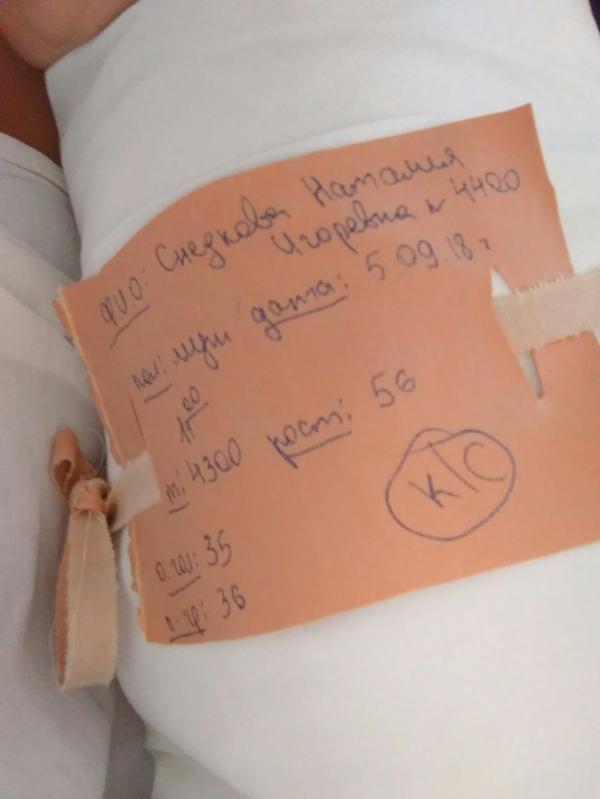 Ф.И.О: Снедкова Наталия
Игоревна № 4420
пол: муж дата: 5.09.18 г
17 00
m: 4300 рост: 56
о.гол: 35
о.гр: 36
К/С